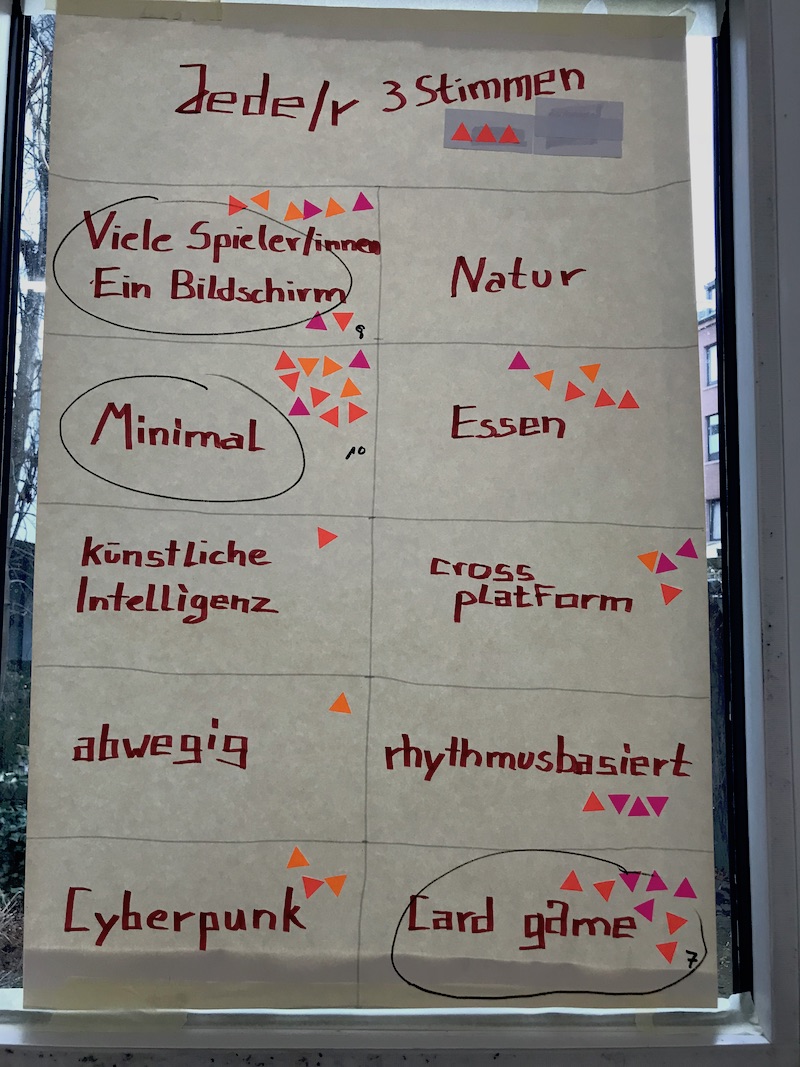 Jede/r 3 Stimmen
Viele Spieler/innen
Ein Bildschirm
8
Natur
Minimal
10
Essen
künstliche
Intelligenz
cross
platform
abwegig
rhythmusbasiert
Cyberpunk
Card game
7